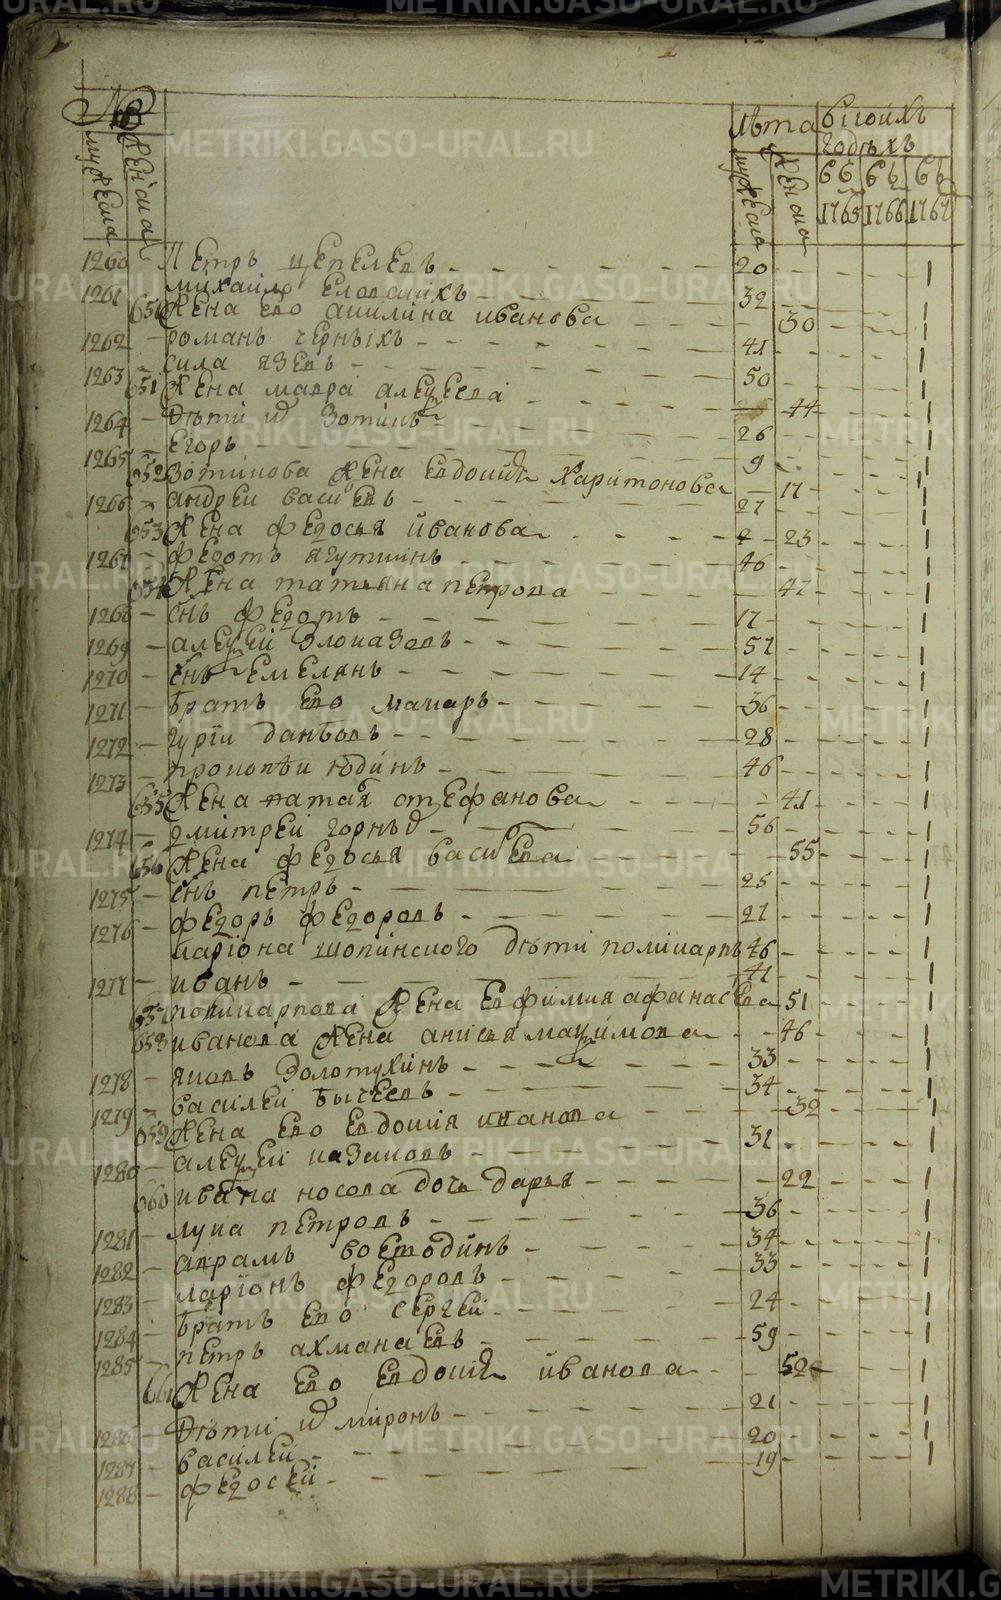 №
мужеска
женска
лѣта
мужеска
женска
в коихъ
годѣхъ
въ въ въ
1765 1766 1767
1260 Петръ Цепелевъ 20
1261 михайло Еловскихъ 32
650 жена ево акилина иванова 30
1262 романъ черныхъ 41
1263 сила язевъ 50
651 жена мавра алеѯеева 44
1264 дѣти ихъ Зотикъ 26
1265 Егоръ 9
652 Зотикова жена Евдокия Харитонова 17
1266 андреи васильевъ 27
653 жена федосья иванова 23
1267 федотъ ягуткинъ 46
654 жена татьяна петрова 47
1268 снъ федотъ 17
1269 алеѯей Злоказовъ 57
1270 снъ Емельянъ 14
1271 братъ ево макаръ 36
1272 гурiи данѣовъ 28
1273 прокопѣи юдинъ 46
655 жена наталья стефанова 41
1274 дмитреи горныхъ 56
656 жена федосья васильева 55
1275 снъ петръ 25
1276 федоръ федоровъ 27
ларiона шопинского дѣти поликарпъ 46
1277 иванъ 41
657 поликарпова жена Ефимия афанасьева 51
658 иванова жена анисья маѯимова 46
1278 яковъ Золотухинъ 33
1279 василеи бычковъ 34
659 жена ево Евдокия иванова 32
1280 алеѯеи казаковъ 31
660 ивана носова дочь дарья 22
1281 лука петровъ 36
1282 абрамъ 34
1283 ларiонъ федоровъ 33
1284 братъ ево сергеи 24
1285 петръ ахманаевъ 59
661 жена ево Евдокия иванова 52
1286 дѣти ихъ миронъ 21
1287 василеи 20
1288 федосеи 19
METRIKI.GASO-URAL.RU